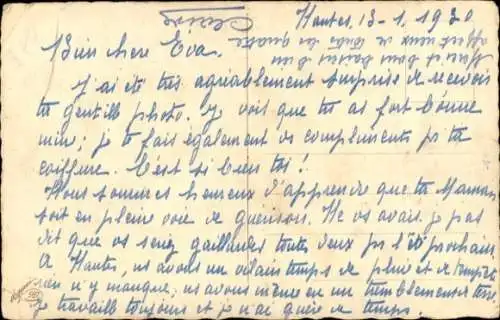 Nantes, 13-1, 1930
Bien chère Eva.
J'ai été très agréablement surprise de recevoir
ta gentille photo. Je vois que tu as fort bonne
mine; je te fais également ds compliments pr ta
coiffure. C'est si bien tès!
Nous sommes heureux d'apprendre que ta Maman
soit en pleine voie de guérison. Ne vs avais-je pas
dit que vs seriez gaillardes toutes deux pr l'été prochain.
A Nantes, ns avons un vilain temps de pluie et de tempête
rien n'y manque, ns avons même eu un tremblement de terre
Je travaille toujours et je n'ai guère de temps.